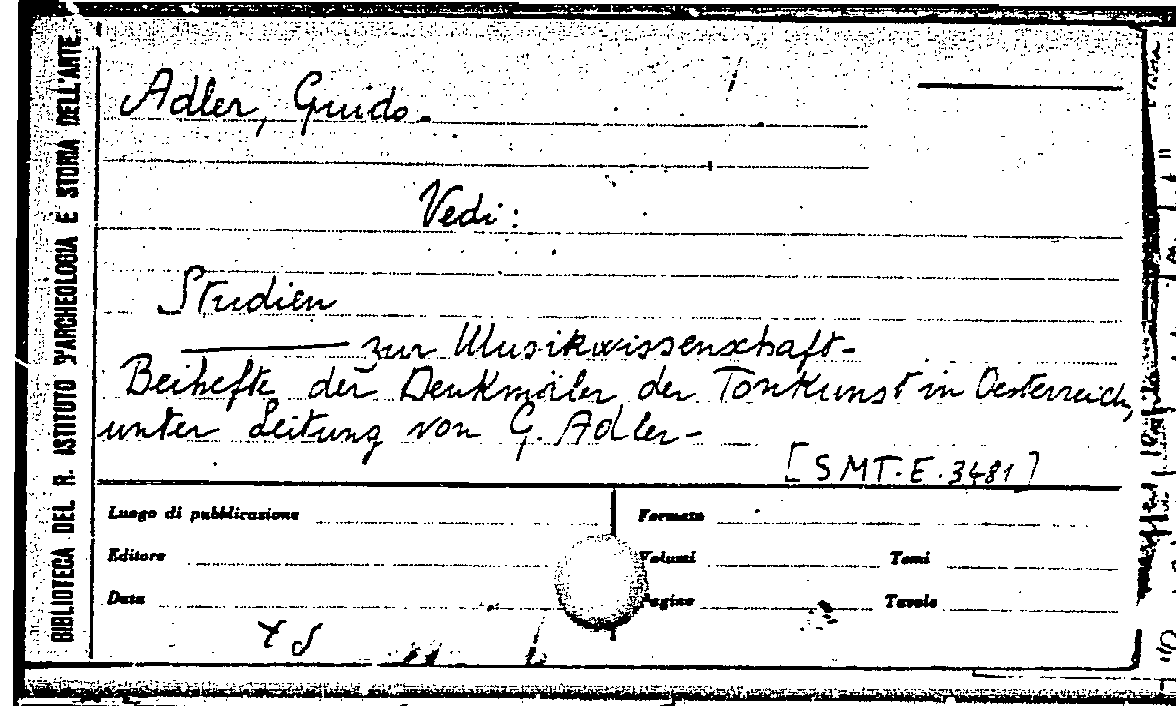 BIBLIOTECA DEL R. ISTITUTO D'ARCHEOLOGIA E STORIA DELL'ARTE
Adler, Guido.
Vedi:
Studien
zur Musikwissenschaft-
Beihefte der Denkmäler der Tonkunst in Oesterreich,
unter Leitung von G. Adler-
[SMT.E.3481]
Luogo di pubblicazione
Formato
Editore
Volumi
Tomi
Data
Pagine
Tavole